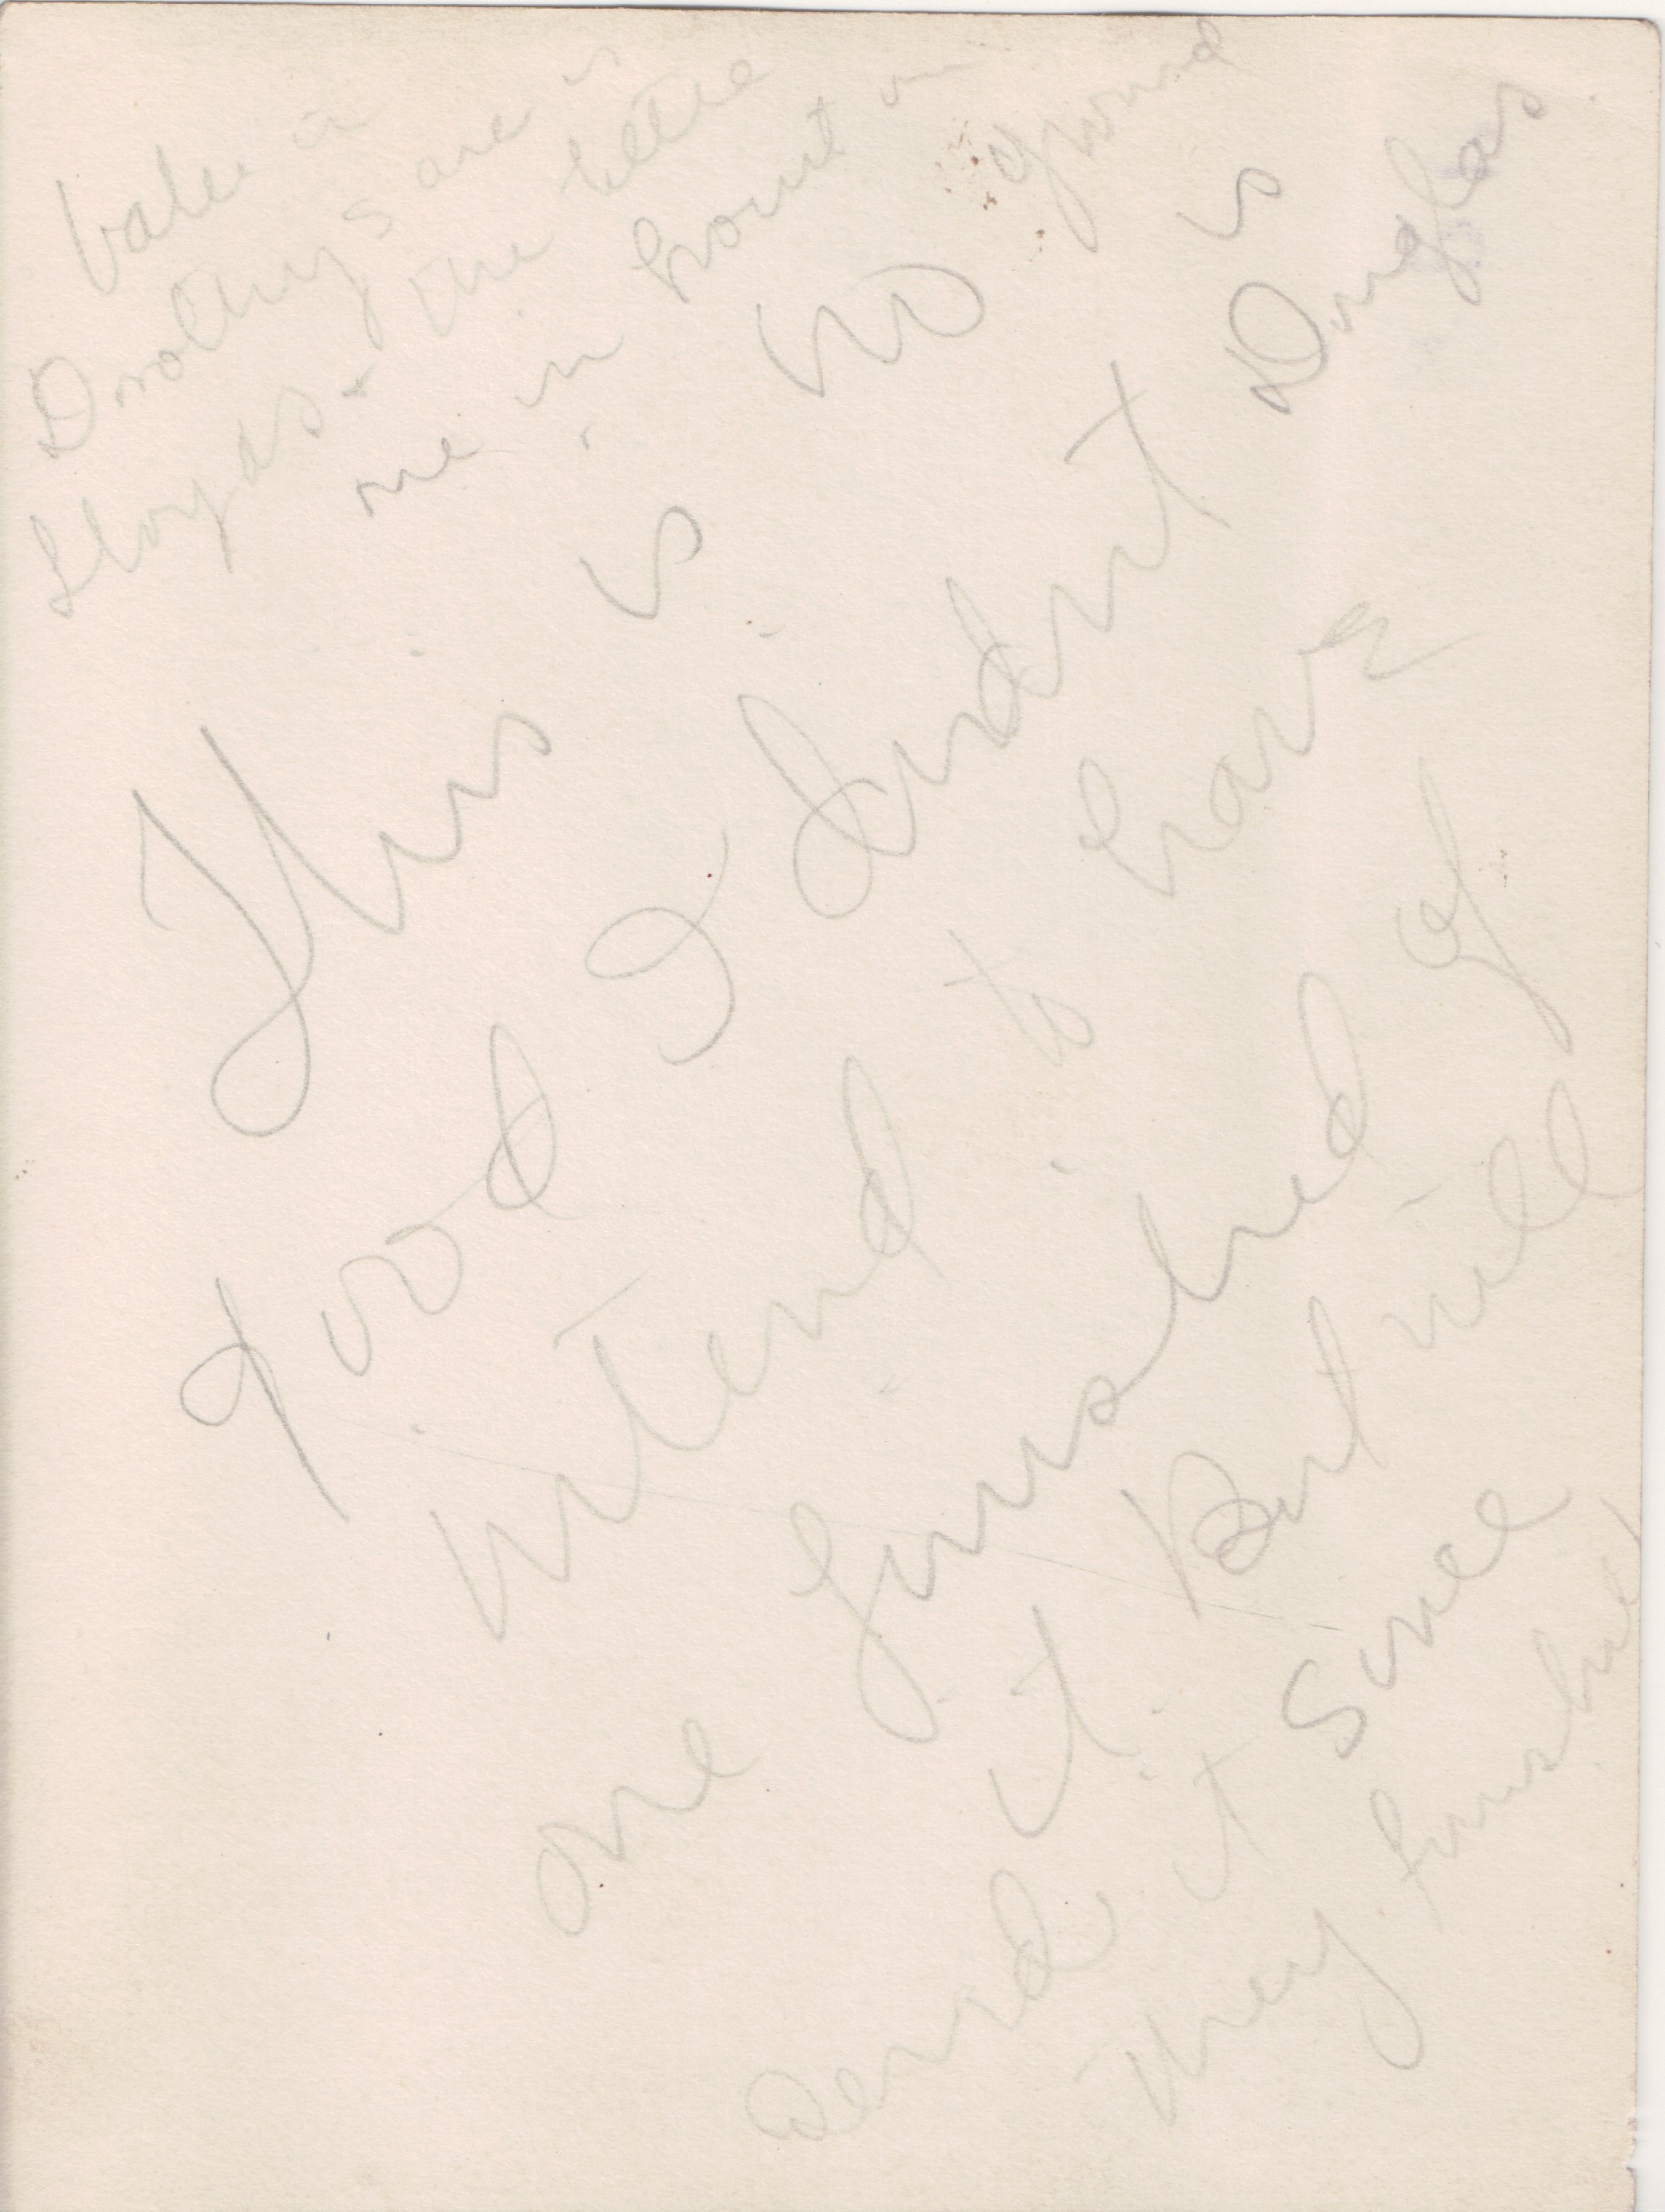 Dorothys are
Lloyds. the little
one in front on
ground
is
Douglas
This is no
good I didn't
intend to have
one finished of
it But will
send it since
they finished